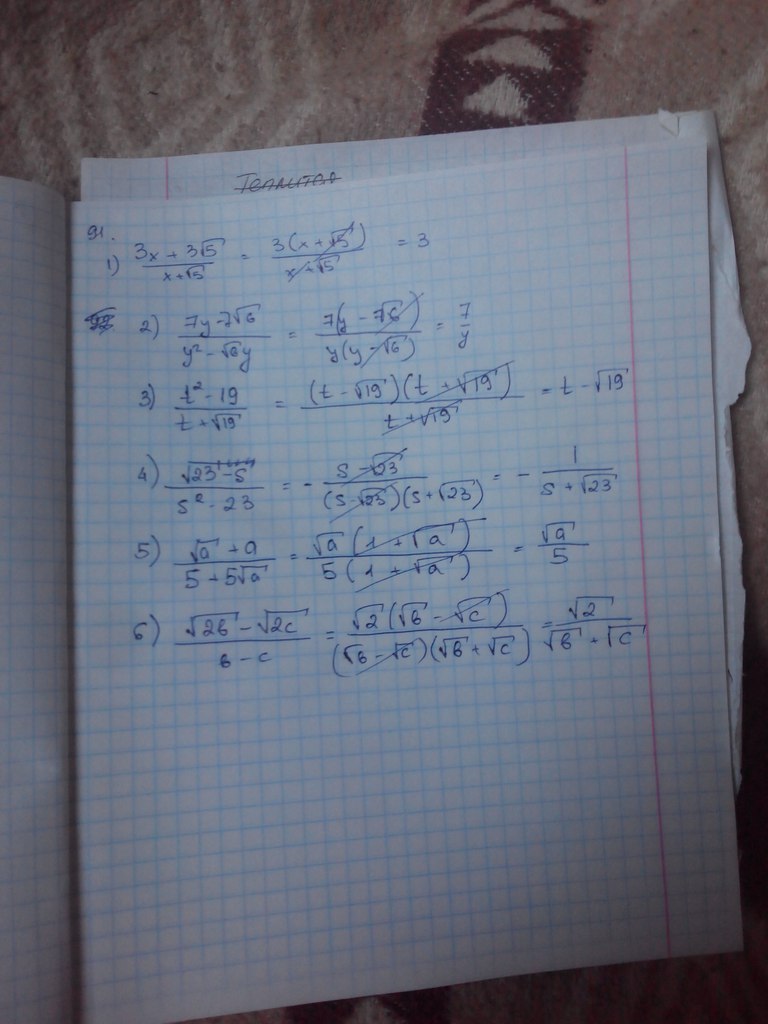 91.
1) (3x + 3√5)/(x+√5) = 3(x + √5)/(x+√5) = 3
2) (7y-7√6)/(y² - √6y) = 7(y - 7√6)/(y(y - √6)) = 7/y
3) (t² - 19)/(t + √19) = (t - √19)(t + √19)/(t + √19) = t - √19
4) (√23 - s)/(s² - 23) = - (s - √23)/((s - √23)(s + √23)) = - 1/(s + √23)
5) (√a + a)/(5 + 5√a) = √a(1 + √a)/(5(1 + √a)) = √a/5
6) (√2в - √2c)/(в - c) = √2(√в - √c)/((√в - √c)(√в + √c)) = √2/(√в + √c)